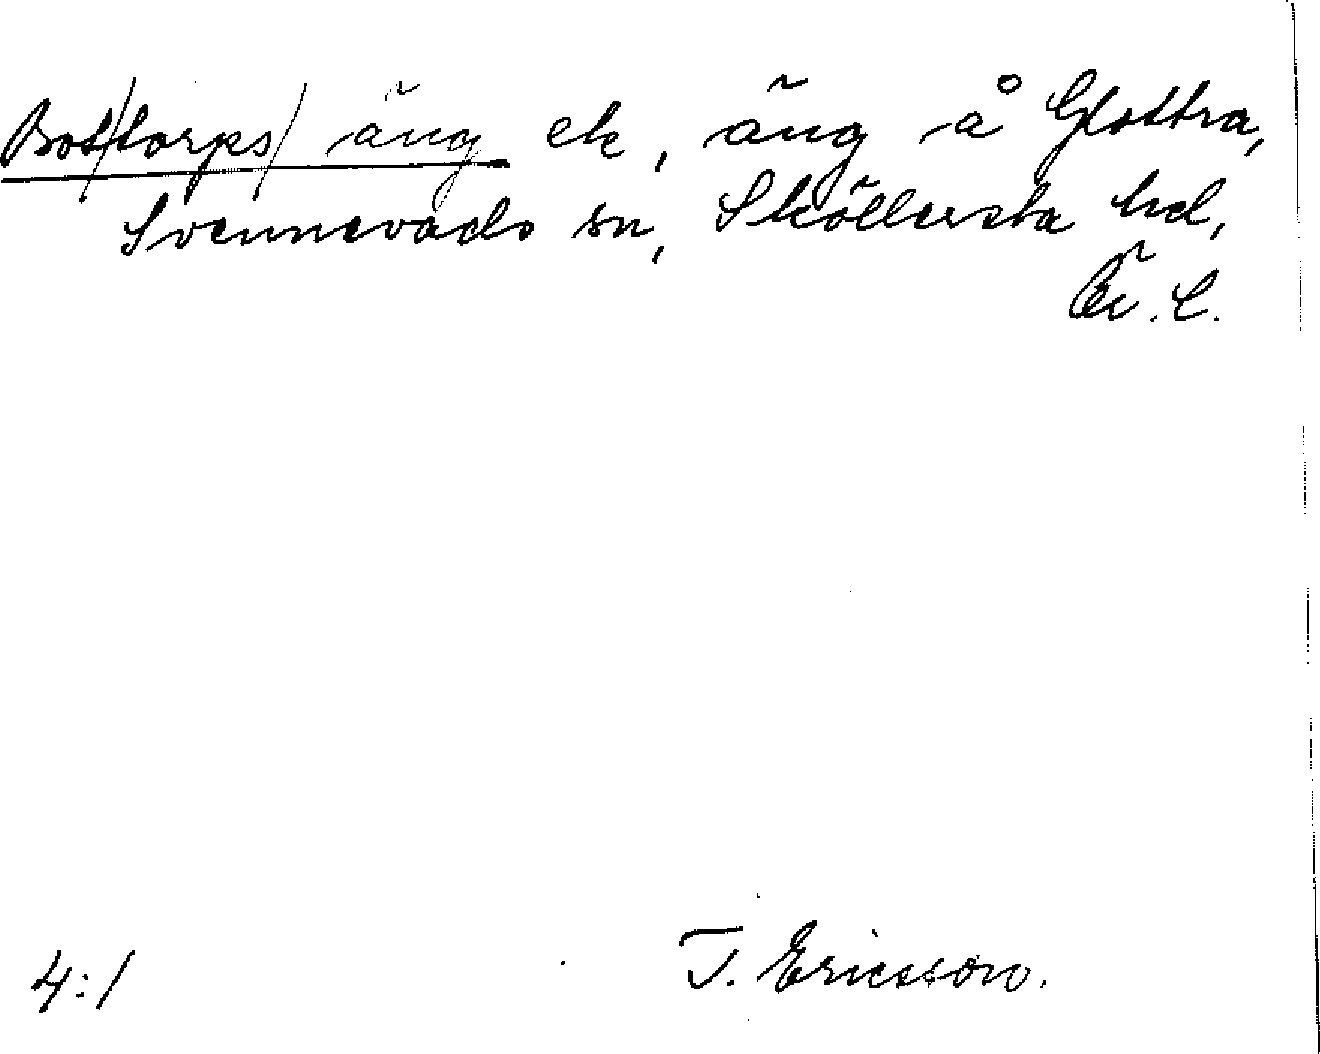 Bot/torps/äng ek, äng å Glottra,
Svennevads sn, Sköllersta hd,
Ör. l.
4:1
T. Ericsson.